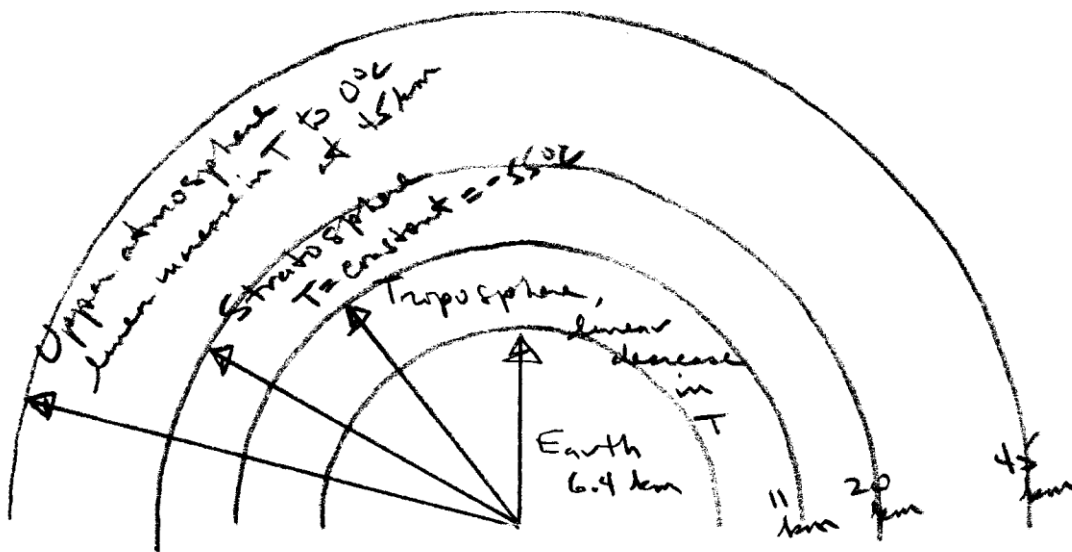 Upper atmosphere
linear increase in T to 0°C
at 45 km
Stratosphere
T = constant = -55°C
Troposphere,
linear
decrease
in
T
Earth
6.4 km
11
km
20
km
45
km